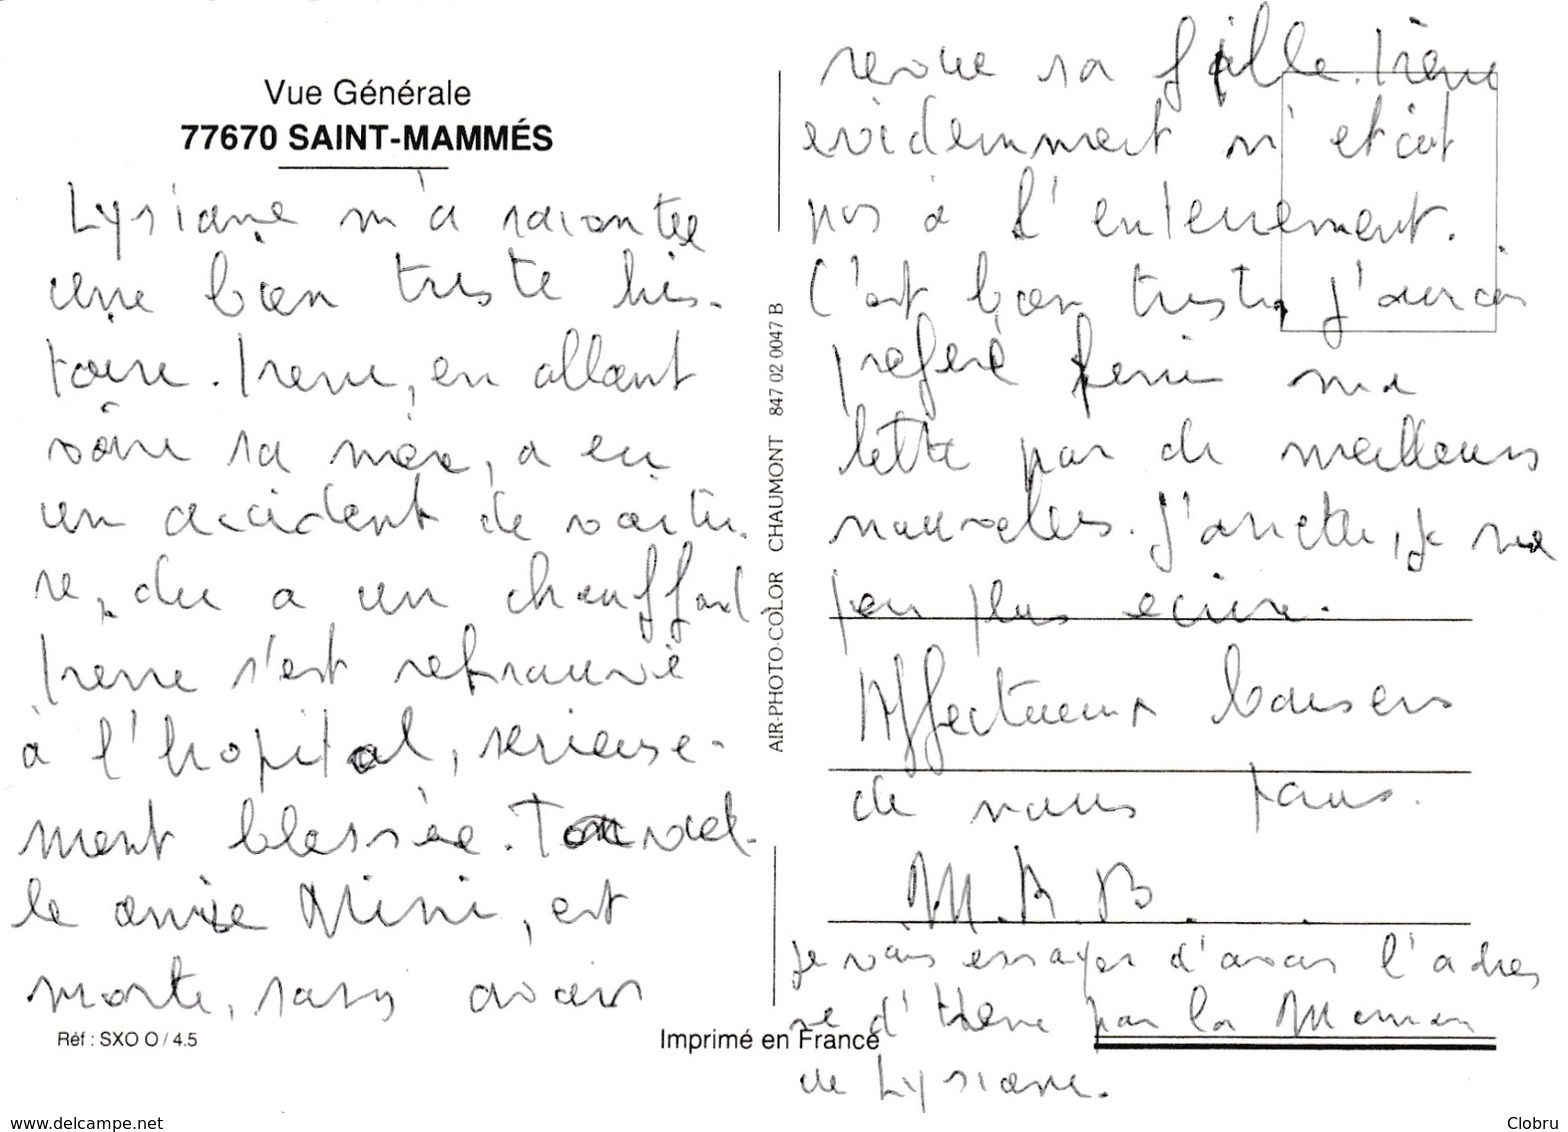 Vue Générale
77670 SAINT-MAMMÉS
Lysiane m'a racontée
une bien triste his-
toire. Irene, en allant
voire sa mère, a eu
un accident de voitu-
re, du a un chauffard
Irene s'est retrouvé
à l'hopital, serieuse-
ment blessée.
le amie Mimi, est
morte, sans avoir
Réf : SXO O / 4.5
AIR-PHOTO-COLOR CHAUMONT 847 02 0047 B
Imprimé en France
revue sa fille. Irène
evidemment n'etait
pas à l'enterrement.
C'est bien triste, j'aurais
preferé finir ma
lettre par de meilleurs
nouvelles. J'arrete, je ne
peu plus ecrire.
Affectueux baisers
de nous tous.
M.A.B.
je vais essayer d'avoir l'adres
se d'Irene par la Maman
de Lysiane.
www.delcampe.net
Clobru